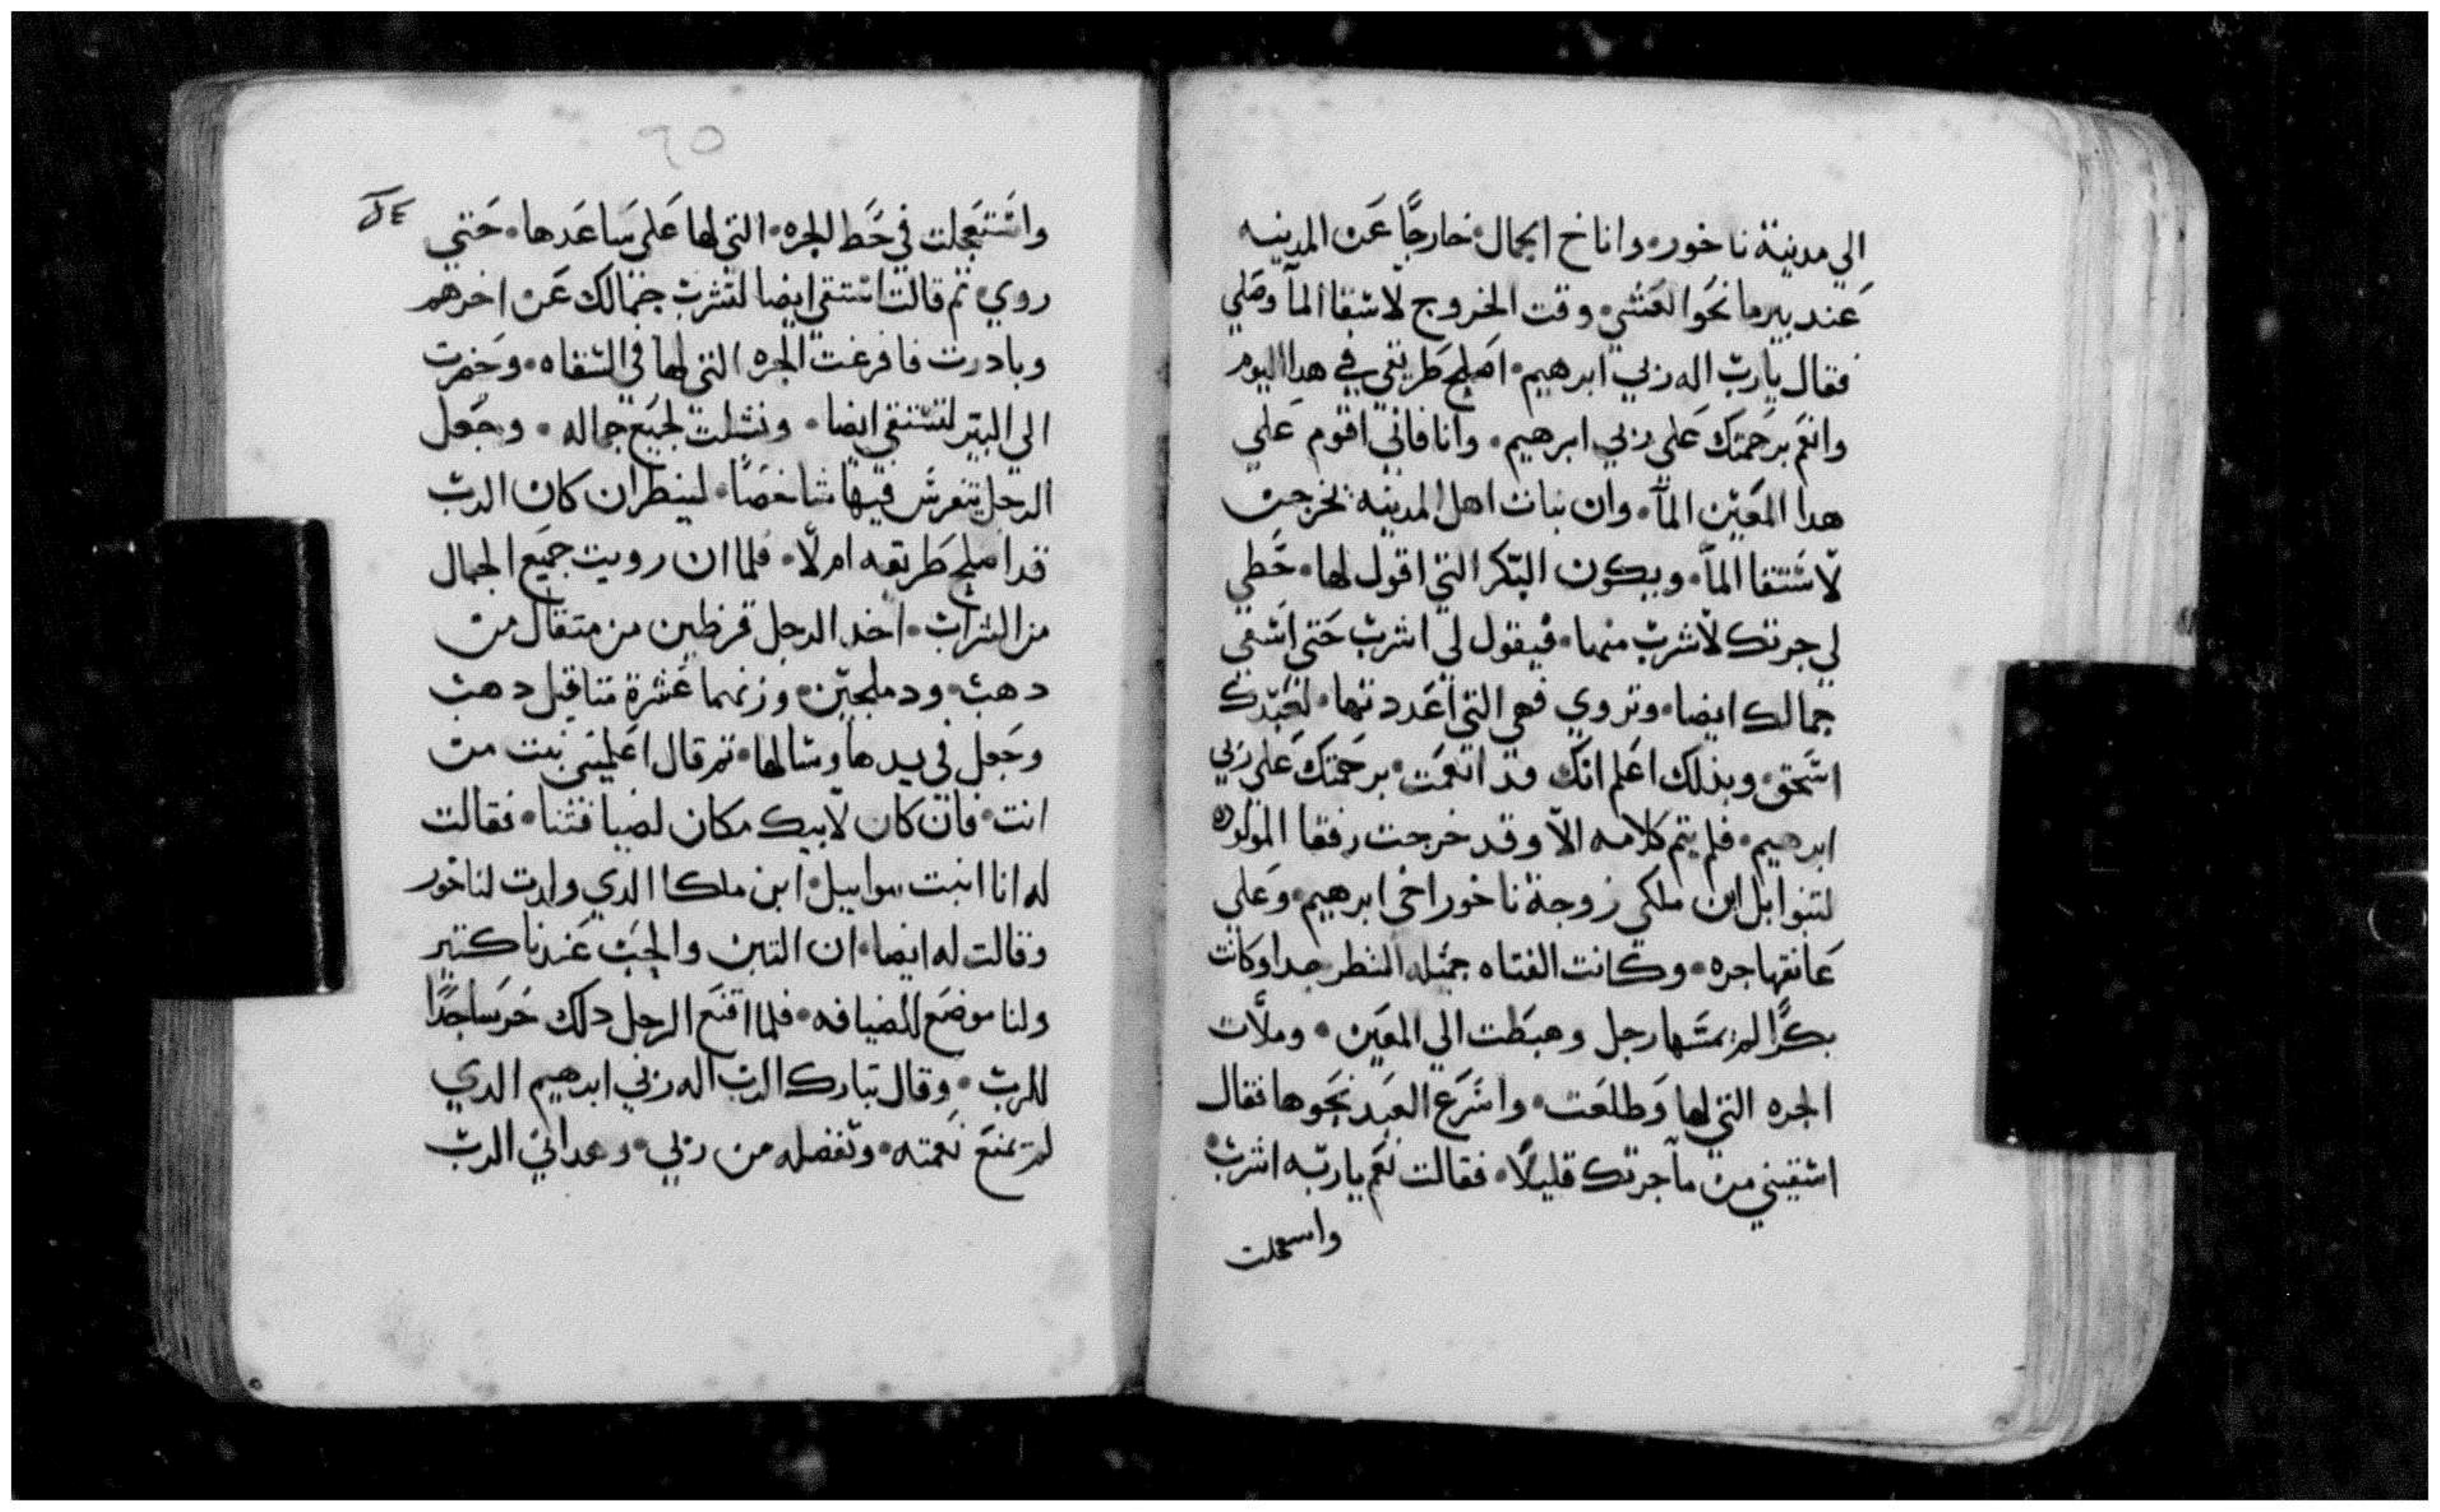 الي مدينة ناخور• واناخ الجمال• خارجًا عن المدينه
عند بيرما نحو العشي• وقت الخروج لاسقا المآ وصلي
فقال يارب اله ربي ابرهيم• اصلح طريقي في هدا اليوم
وانعم برحمتك علي ربي ابرهيم• وانا فاني اقوم علي
هدا المعين المآ• وان بنات اهل المدينه تخرجن
لاستقا المآ• ويكون البكر التي اقول لها• حطي
لي جرتك لاشرب منها• فيقول لي اشرب حتي اسقي
جمالك ايضا• وتروي فهي التي اعددتها• لعبدك
اسحق• وبذلك اعلم انك قد انعمت• برحمتك علي ربي
ابرهيم• فلم يتم كلامه الا وقد خرجت رفقا المولوده
لتبوابل ابن ملكي زوجة ناخور اخي ابرهيم• وعلي
عاتقها جره• وكانت الفتاه جميله المنظر جدا وكانت
بكرًا لم يمسها رجل وهبطت الي المعين• وملات
الجره التي لها وطلعت• واسرع العبد نحوها فقال
اسقيني من مآ جرتك قليلًا• فقالت نعم ياربه اشرب
واسعجلت
٦٥
واستعجلت في حط الجره• التي لها علي ساعدها• حتي
روي• تم قالت استقي ايضا لتشرب جمالك عن اخرهم
وبادرت فافرغت الجره التي لها في السقاه• وحضرت
الي البير لتستقي ايضا• ونشلت لجميع جماله• وجعل
الرجل يتفرس فيها شاخصًا• لينظر ان كان الرب
قد اصلح طريقه ام لا• فلما ان رويت جميع الجمال
من الشراب• اخد الرجل قرطين من متقال من
دهب• ودملجين• وزنهما عشرة متاقيل دهب
وجعل في يدها وسالها• تم قال اعلميني بنت من
انت• فان كان لابيك مكان لضيافتنا• فقالت
له انا ابنت بتوابيل• ابن ملكا الدي ولدت لناخور
وقالت له ايضا• ان التبن والحب عندنا كتير
ولنا موضع للضيافه• فلما اقنع الرجل دلك خر ساجدًا
للرب• وقال تبارك الرب اله ربي ابرهيم الدي
لم يمنع نعمته• وتفضله من ربي• وهداني الرب